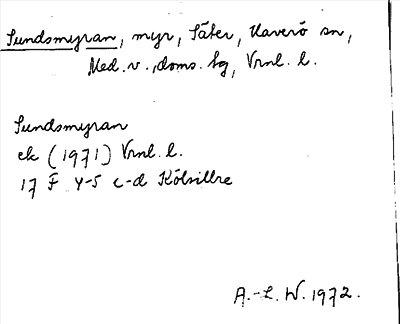 Sundsmyran, myr, Säter, Haverö sn,
Med. v., doms. tg, Vrnl. l.
Sundsmyran
ek (1971) Vrnl. l.
17 F 4-5 c-d Kölsillre
A.-L. W. 1972.